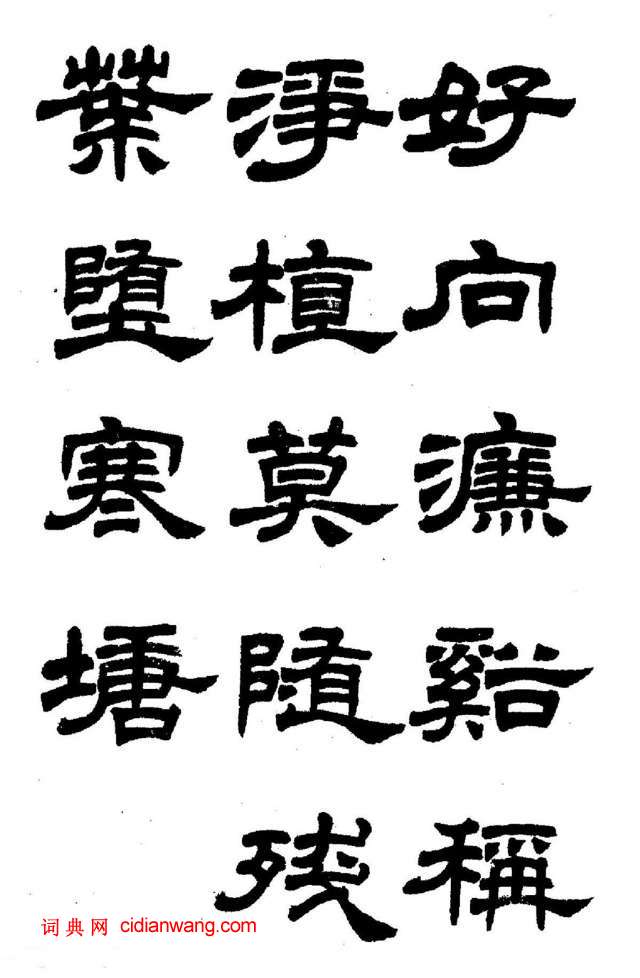 好向濂谿稱
淨植莫随残
葉墮寒塘
词典网 cidianwang.com